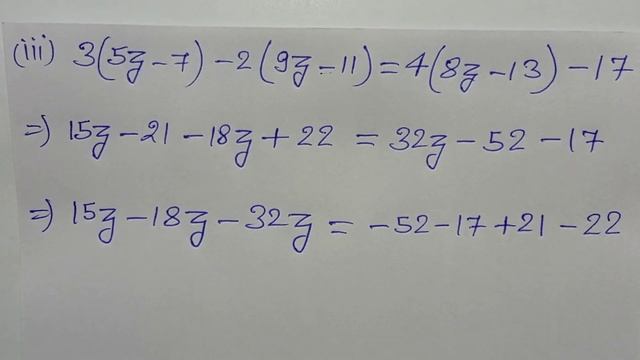 (iii) 3(5z-7)-2(9z-11)=4(8z-13)-17
=> 15z-21-18z+22 = 32z-52-17
=> 15z-18z-32z = -52-17+21-22